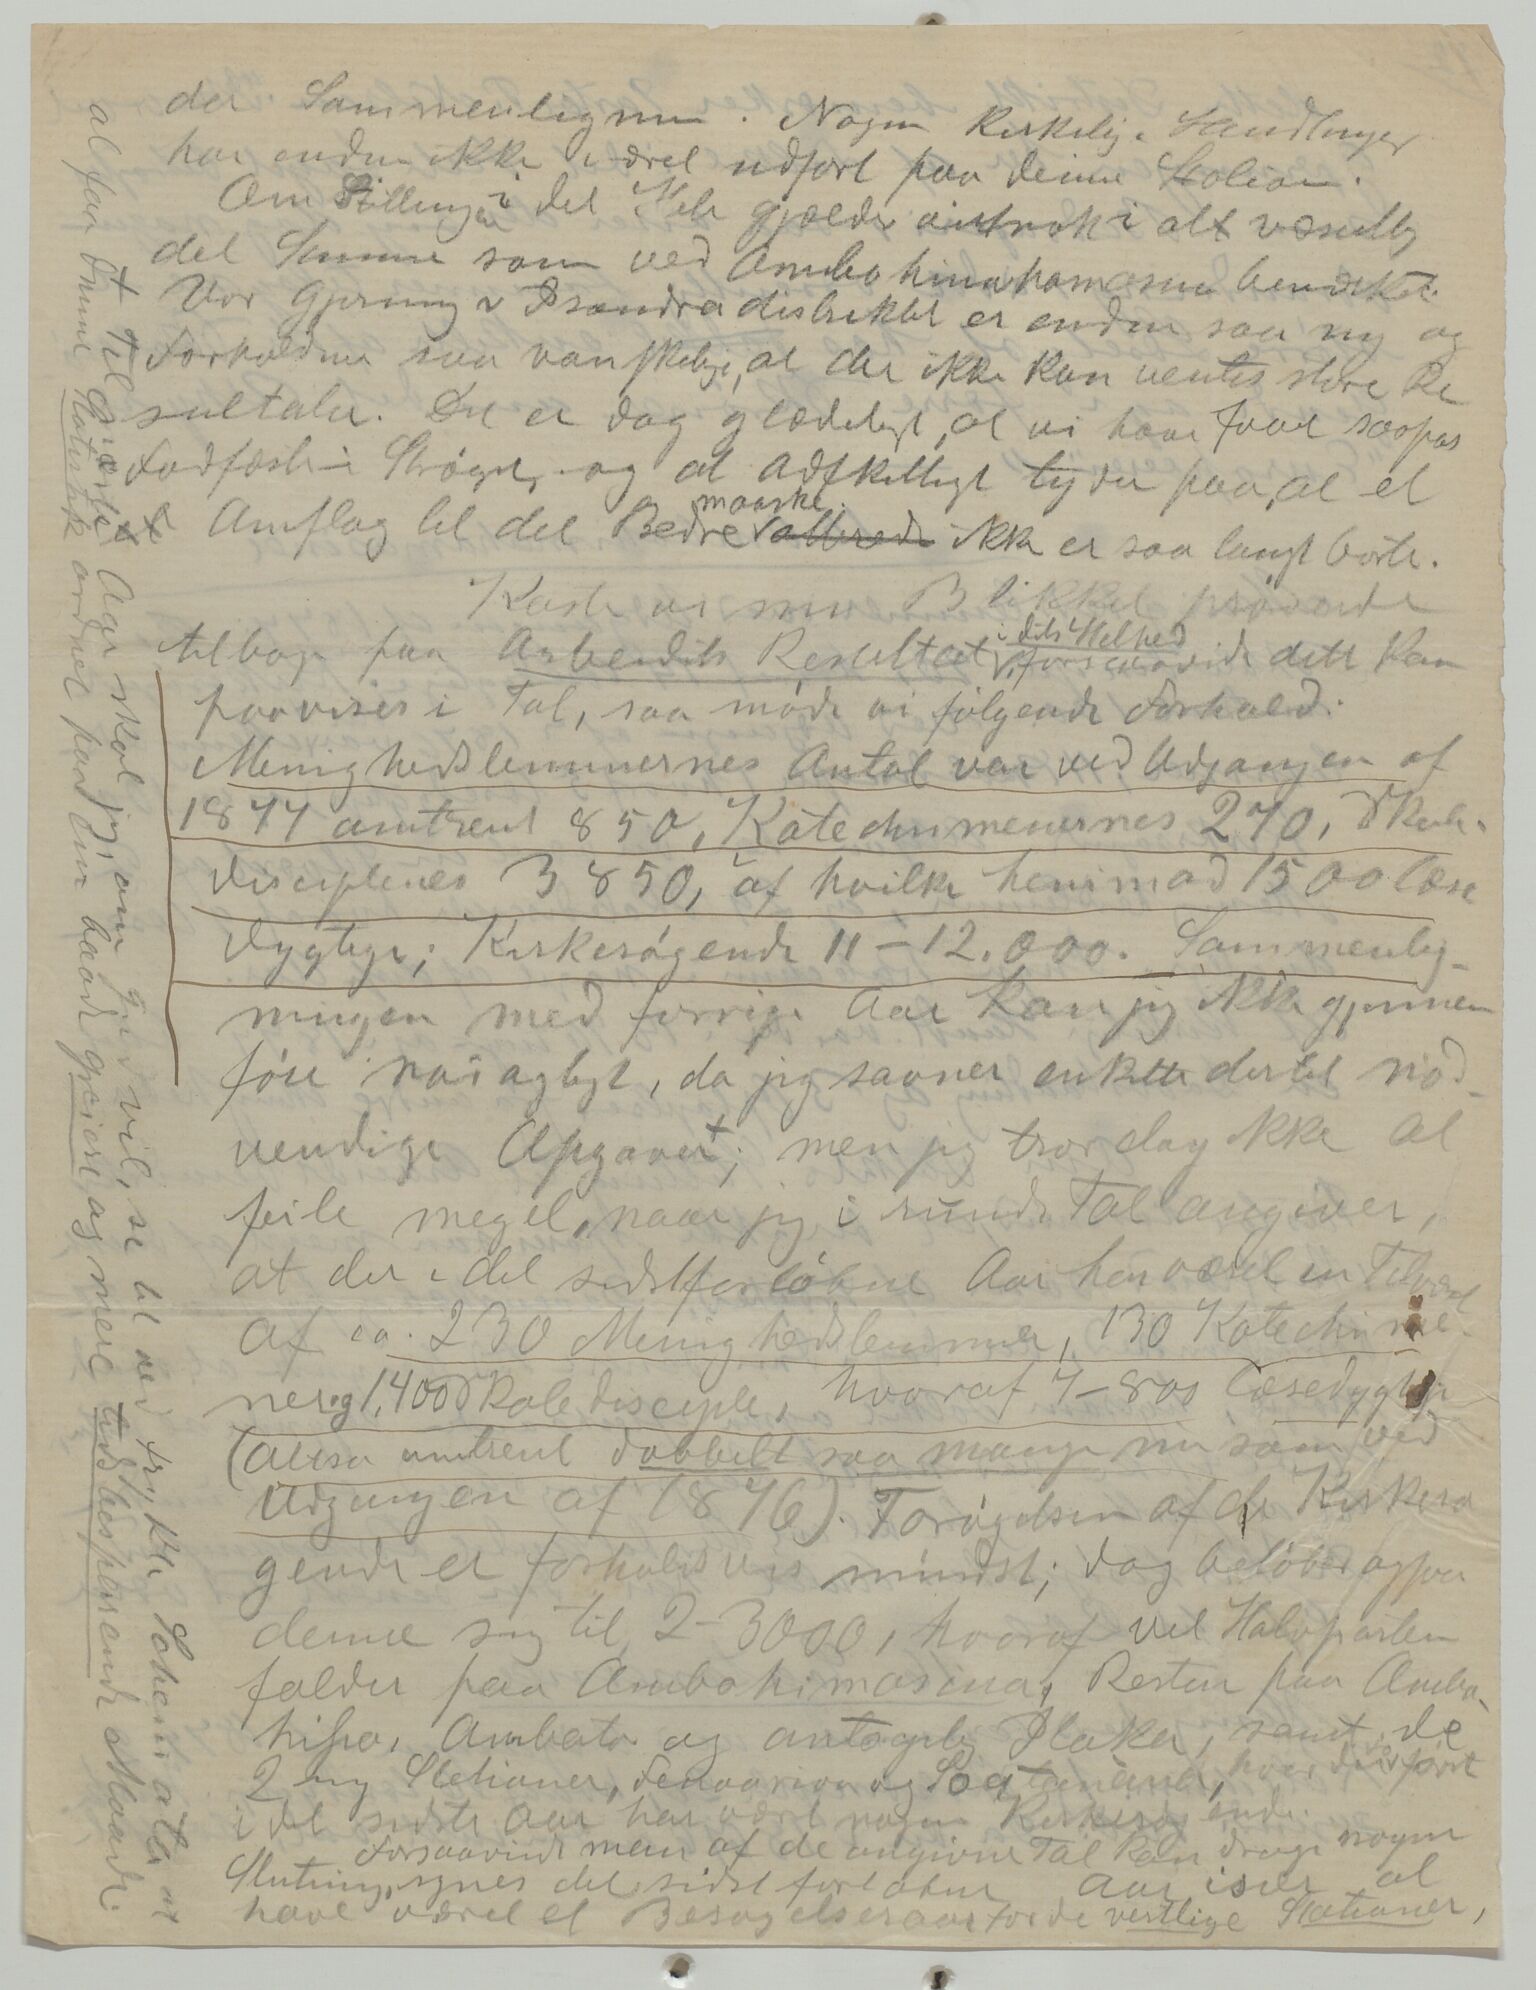 der Sammenlignin. Nogen kirkelig. Handlinger
har endnu ikke været udført paa denne Station.
Om Stillingen i det Hele gjælder nok i alt væsentlig
det Samme som ved Ambohimahamasina bemærket.
Vor Gjerning i Tsandradistriktet er endnu saa ny og
Forholdene saa vanskelige, at der ikke kan ventes større Re
sultater. Det er dog glædeligt, at vi have faaet saapas
Fodfæste i Strøget, og at adskilligt tyder paa, at et
Omslag til det Bedre maaske allerede ikke er saa langt borte.
Kaste vi nu Blikket prøvende
tilbage paa Arbeidets Resultat i dets Helhed, forsaavidt dette kan
paavises i Tal, saa møde vi følgende Forhold:
Menighedslemmernes Antal var ved Udgangen af
1877 omtrent 850, Katechumenernes 270, Skole-
disciplenes 3850, af hvilke henimod 1500 læse
dygtige; Kirkesøgende 11-12.000. Sammenlig-
ningen med forrige Aar kan jeg ikke gjennem
føre nøiagtigt, da jeg savner enkelte dertil nød-
vendige Opgaver+; men jeg tror dog ikke at
feile meget, naar jeg i runde Tal angiver,
at der i det sidstforløbne Aar har været en Tilvæxt
af ca. 230 Menighedslemmer, 130 Katechume-
ner og 1,400 Skoledisciple, hvoraf 7-800 læsedygtige
(altsaa omtrent dobbelt saa mange nu som ved
Udgangen af 1876). Forøgelsen af de Kirkesø
gende er forholdsvis mindst; dog beløber ogsaa
denne sig til 2-3000, hvoraf vel Halvparten
falder paa Ambohimasina, Resten paa Ambo-
hipo, Ambato og Ilaka, samt de
2 ny Stationer, Fenoarivo og Soatanana, hvor der først
i det sidste Aar har været nogen Kirkesøgende.
Forsaavidt man af de angivne Tal kan drage nogen
Slutning, synes det sidst forløbne Aar især at
have været et Besøgelsesaar for de vestlige Stationer,
+ Til næste Aar skal jeg, om Gud vil, se til ved trykte Schemater
at faa denne Statistik ordnet paa en baade greiere og mere tidsbesparende Maade.